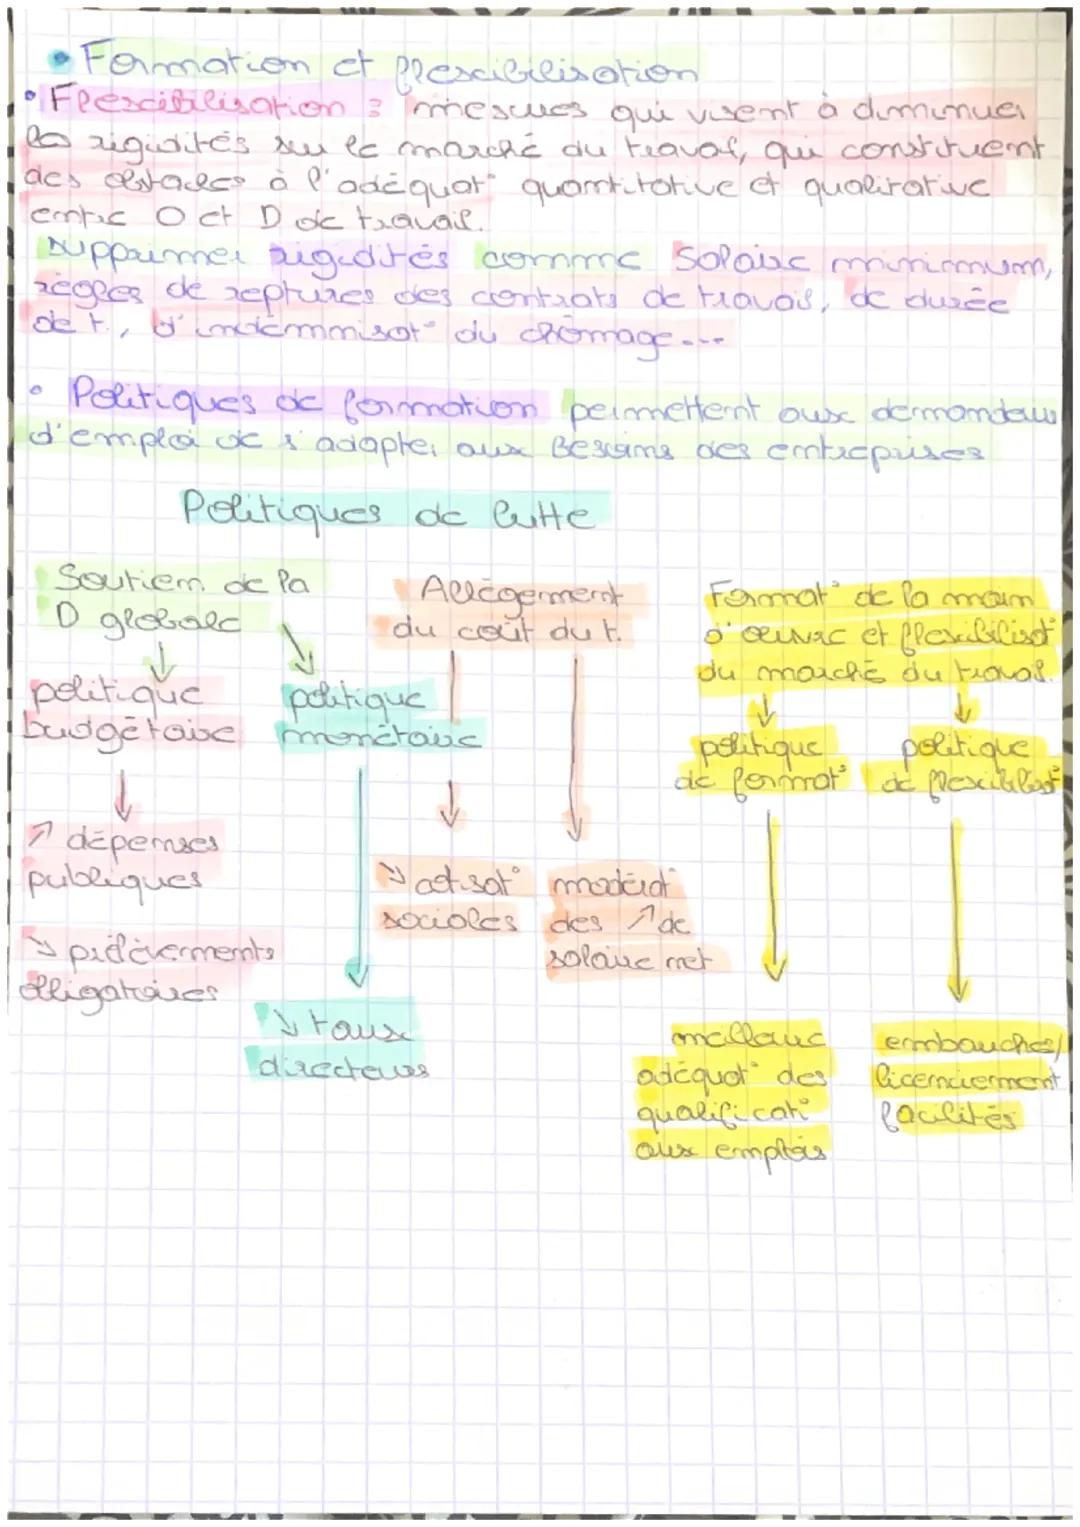 • Formation et flexibilisation
• Flexibilisation : mesures qui visent à diminuer
les rigidités sur le marché du travail, qui constituent
des obstacles à l'adéquat° quantitative et qualitative
entre O et D de travail.
supprimer rigidités comme salaire minimum,
règles de reptures des contrats de travais, de durée
de t., d'indemnisat° du chômage...
• Politiques de formation permettent aux demandeurs
d'emploi de s'adapter aux Besoins des entreprises
Politiques de lutte
Soutien de la
D globale
↓ ↘
politique
budgétaire
↓
↗ dépenses
publiques
↘ prélèvements
obligatoires
politique
monétaire
↓
↘ taux
directeurs
Allègement
du coût du t.
↓ ↓
↘ cotisat°
sociales
modérat°
des ↗ de
salaire net
Format° de la main
d'œuvre et flexibilisat°
du marché du travail.
↓ ↓
politique
de format°
↓
meilleure
adéquat° des
qualificat°
aux emplois
politique
de flexibilisat°
↓
embauches/
licenciement
facilités